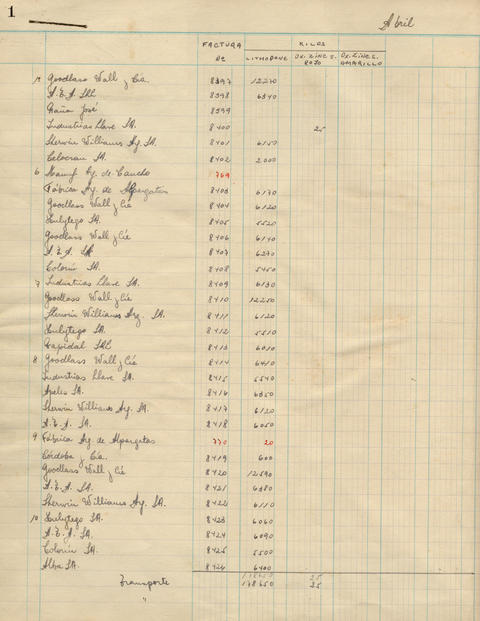 1
Abril
FACTURA KILOS
Nº LITHOPONE OX. ZINC S. ROJO OX. ZINC S. AMARILLO
1º Goodlass Wall y Cía. 8397 12270
A.E.A. SRL 8398 6340
José 8399
Industrias Llave SA. 8400 25
Sherwin Williams Ag. SA. 8401 6150
SA. 8402 2000
6 Manuf. Ag. de Caucho 769
Fábrica Ag. de Alpargatas 8403 6170
Goodlass Wall y Cía 8404 6120
SA. 8405 5520
Goodlass Wall y Cía 8406 6140
A.E.A. SA 8407 6270
Colorín SA. 8408 5450
7 Industrias Llave SA. 8409 6130
Goodlass Wall y Cía 8410 12250
Sherwin Williams Arg. SA. 8411 6120
SA. 8412 5510
SRL 8413 6010
8 Goodlass Wall y Cía 8414 6410
Industrias Llave SA. 8415 5540
Apeles SA. 8416 6350
Sherwin Williams Arg. SA. 8417 6120
A.E.A. SA. 8418 6050
9 Fábrica Ag. de Alpargatas 770 20
Córdoba y Cía. 8419 600
Goodlass Wall y Cía 8420 12590
A.E.A. SA. 8421 6380
Sherwin Williams Arg. SA. 8422 6110
10 SA. 8423 6060
A.E.A. SA. 8424 6090
Colorín SA. 8425 5500
Alba SA. 8426 6400
178650 25
Transporte 178650 25
"